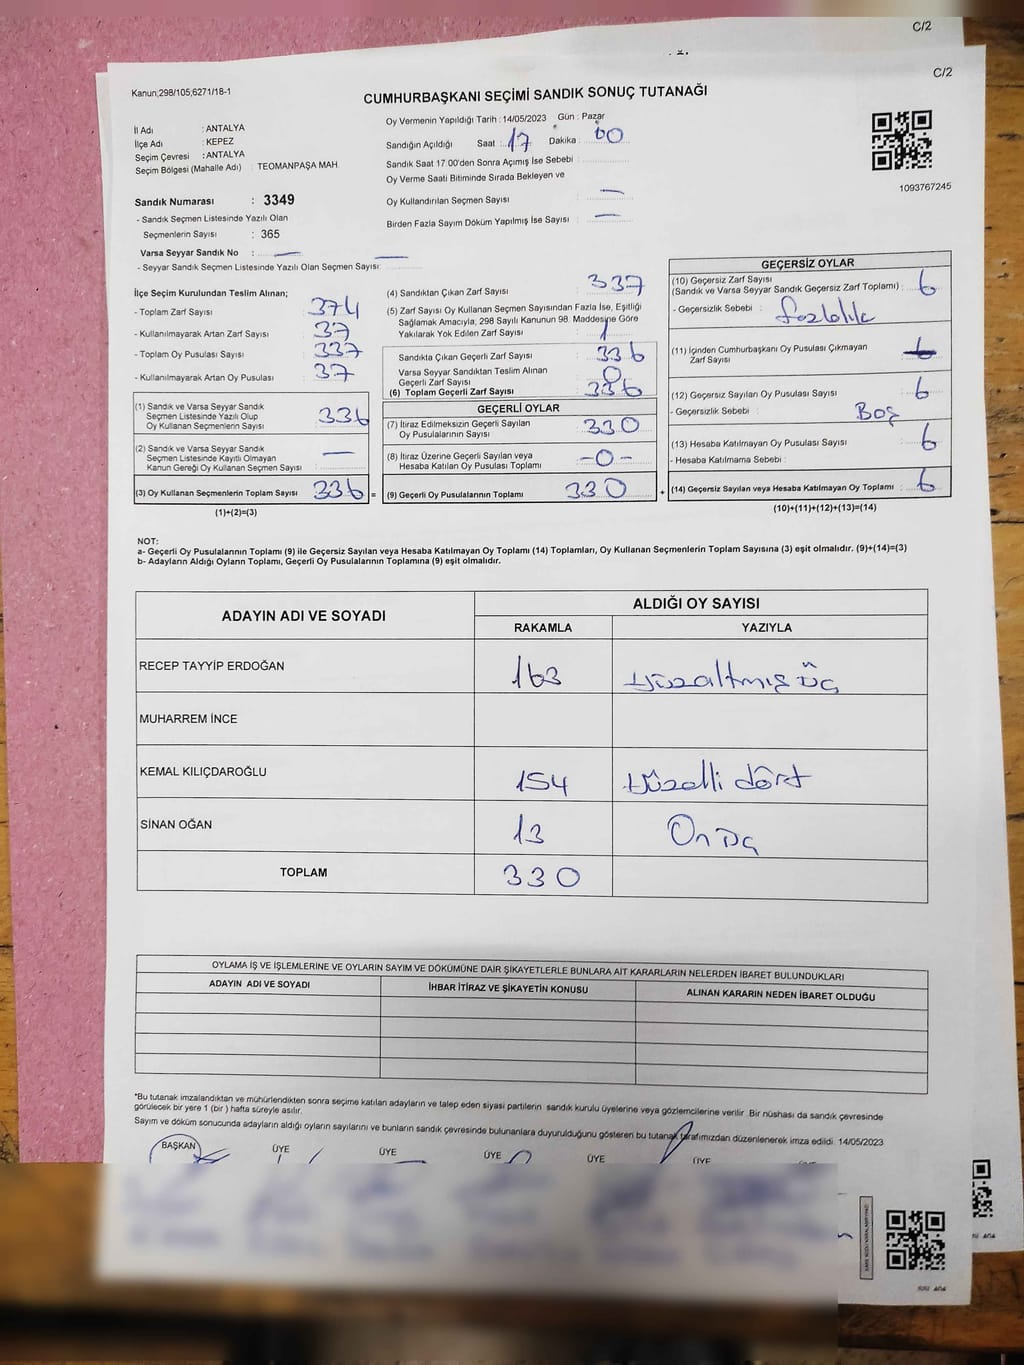 C/2
C/2
Kanun;298/105,6271/18-1
CUMHURBAŞKANI SEÇİMİ SANDIK SONUÇ TUTANAĞI
İl Adı : ANTALYA
İlçe Adı : KEPEZ
Seçim Çevresi : ANTALYA
Seçim Bölgesi (Mahalle Adı) : TEOMANPAŞA MAH.
Oy Vermenin Yapıldığı Tarih : 14/05/2023 Gün : Pazar
Sandığın Açıldığı Saat : 17 Dakika : 00
Sandık Saat 17:00'den Sonra Açımış İse Sebebi :
Oy Verme Saati Bitiminde Sırada Bekleyen ve
Oy Kullandırılan Seçmen Sayısı : —
Birden Fazla Sayım Döküm Yapılmış İse Sayısı : —
1093767245
Sandık Numarası : 3349
- Sandık Seçmen Listesinde Yazılı Olan
Seçmenlerin Sayısı : 365
Varsa Seyyar Sandık No : —
- Seyyar Sandık Seçmen Listesinde Yazılı Olan Seçmen Sayısı: —
İlçe Seçim Kurulundan Teslim Alınan;
- Toplam Zarf Sayısı : 374
- Kullanılmayarak Artan Zarf Sayısı : 37
- Toplam Oy Pusulası Sayısı : 337
- Kullanılmayarak Artan Oy Pusulası : 37
(1) Sandık ve Varsa Seyyar Sandık
Seçmen Listesinde Yazılı Olup
Oy Kullanan Seçmenlerin Sayısı : 336
(2) Sandık ve Varsa Seyyar Sandık
Seçmen Listesinde Kayıtlı Olmayan
Kanun Gereği Oy Kullanan Seçmen Sayısı : —
(3) Oy Kullanan Seçmenlerin Toplam Sayısı : 336 =
(1)+(2)=(3)
(4) Sandıktan Çıkan Zarf Sayısı : 337
(5) Zarf Sayısı Oy Kullanan Seçmen Sayısından Fazla İse, Eşitliği
Sağlamak Amacıyla, 298 Sayılı Kanunun 98. Maddesine Göre
Yakılarak Yok Edilen Zarf Sayısı : 1
Sandıkta Çıkan Geçerli Zarf Sayısı : 336
Varsa Seyyar Sandıktan Teslim Alınan
Geçerli Zarf Sayısı : 0
(6) Toplam Geçerli Zarf Sayısı : 336
GEÇERLİ OYLAR
(7) İtiraz Edilmeksizin Geçerli Sayılan
Oy Pusulalarının Sayısı : 330
(8) İtiraz Üzerine Geçerli Sayılan veya
Hesaba Katılan Oy Pusulası Toplamı : -0-
(9) Geçerli Oy Pusulalarının Toplamı : 330 +
GEÇERSİZ OYLAR
(10) Geçersiz Zarf Sayısı
(Sandık ve Varsa Seyyar Sandık Geçersiz Zarf Toplamı) : 6
- Geçersizlik Sebebi : fazlalık
(11) İçinden Cumhurbaşkanı Oy Pusulası Çıkmayan
Zarf Sayısı
(12) Geçersiz Sayılan Oy Pusulası Sayısı : 6
- Geçersizlik Sebebi : Boş
(13) Hesaba Katılmayan Oy Pusulası Sayısı : 6
- Hesaba Katılmama Sebebi :
(14) Geçersiz Sayılan veya Hesaba Katılmayan Oy Toplamı : 6
(10)+(11)+(12)+(13)=(14)
NOT:
a- Geçerli Oy Pusulalarının Toplamı (9) ile Geçersiz Sayılan veya Hesaba Katılmayan Oy Toplamı (14) Toplamları, Oy Kullanan Seçmenlerin Toplam Sayısına (3) eşit olmalıdır. (9)+(14)=(3)
b- Adayların Aldığı Oyların Toplamı, Geçerli Oy Pusulalarının Toplamına (9) eşit olmalıdır.
ADAYIN ADI VE SOYADI
ALDIĞI OY SAYISI
RAKAMLA YAZIYLA
RECEP TAYYİP ERDOĞAN 163 Yüzaltmış üç
MUHARREM İNCE
KEMAL KILIÇDAROĞLU 154 Yüzelli dört
SİNAN OĞAN 13 Onüç
TOPLAM 330
OYLAMA İŞ VE İŞLEMLERİNE VE OYLARIN SAYIM VE DÖKÜMÜNE DAİR ŞİKAYETLERLE BUNLARA AİT KARARLARIN NELERDEN İBARET BULUNDUKLARI
ADAYIN ADI VE SOYADI İHBAR İTİRAZ VE ŞİKAYETİN KONUSU ALINAN KARARIN NEDEN İBARET OLDUĞU
*Bu tutanak imzalandıktan ve mühürlendikten sonra seçime katılan adayların ve talep eden siyasi partilerin sandık kurulu üyelerine veya gözlemcilerine verilir. Bir nüshası da sandık çevresinde
görülecek bir yere 1 (bir ) hafta süreyle asılır.
Sayım ve döküm sonucunda adayların aldığı oyların sayılarını ve bunların sandık çevresinde bulunanlara duyurulduğunu gösteren bu tutanak tarafımızdan düzenlenerek imza edildi. 14/05/2023
BAŞKAN ÜYE ÜYE ÜYE ÜYE ÜYE